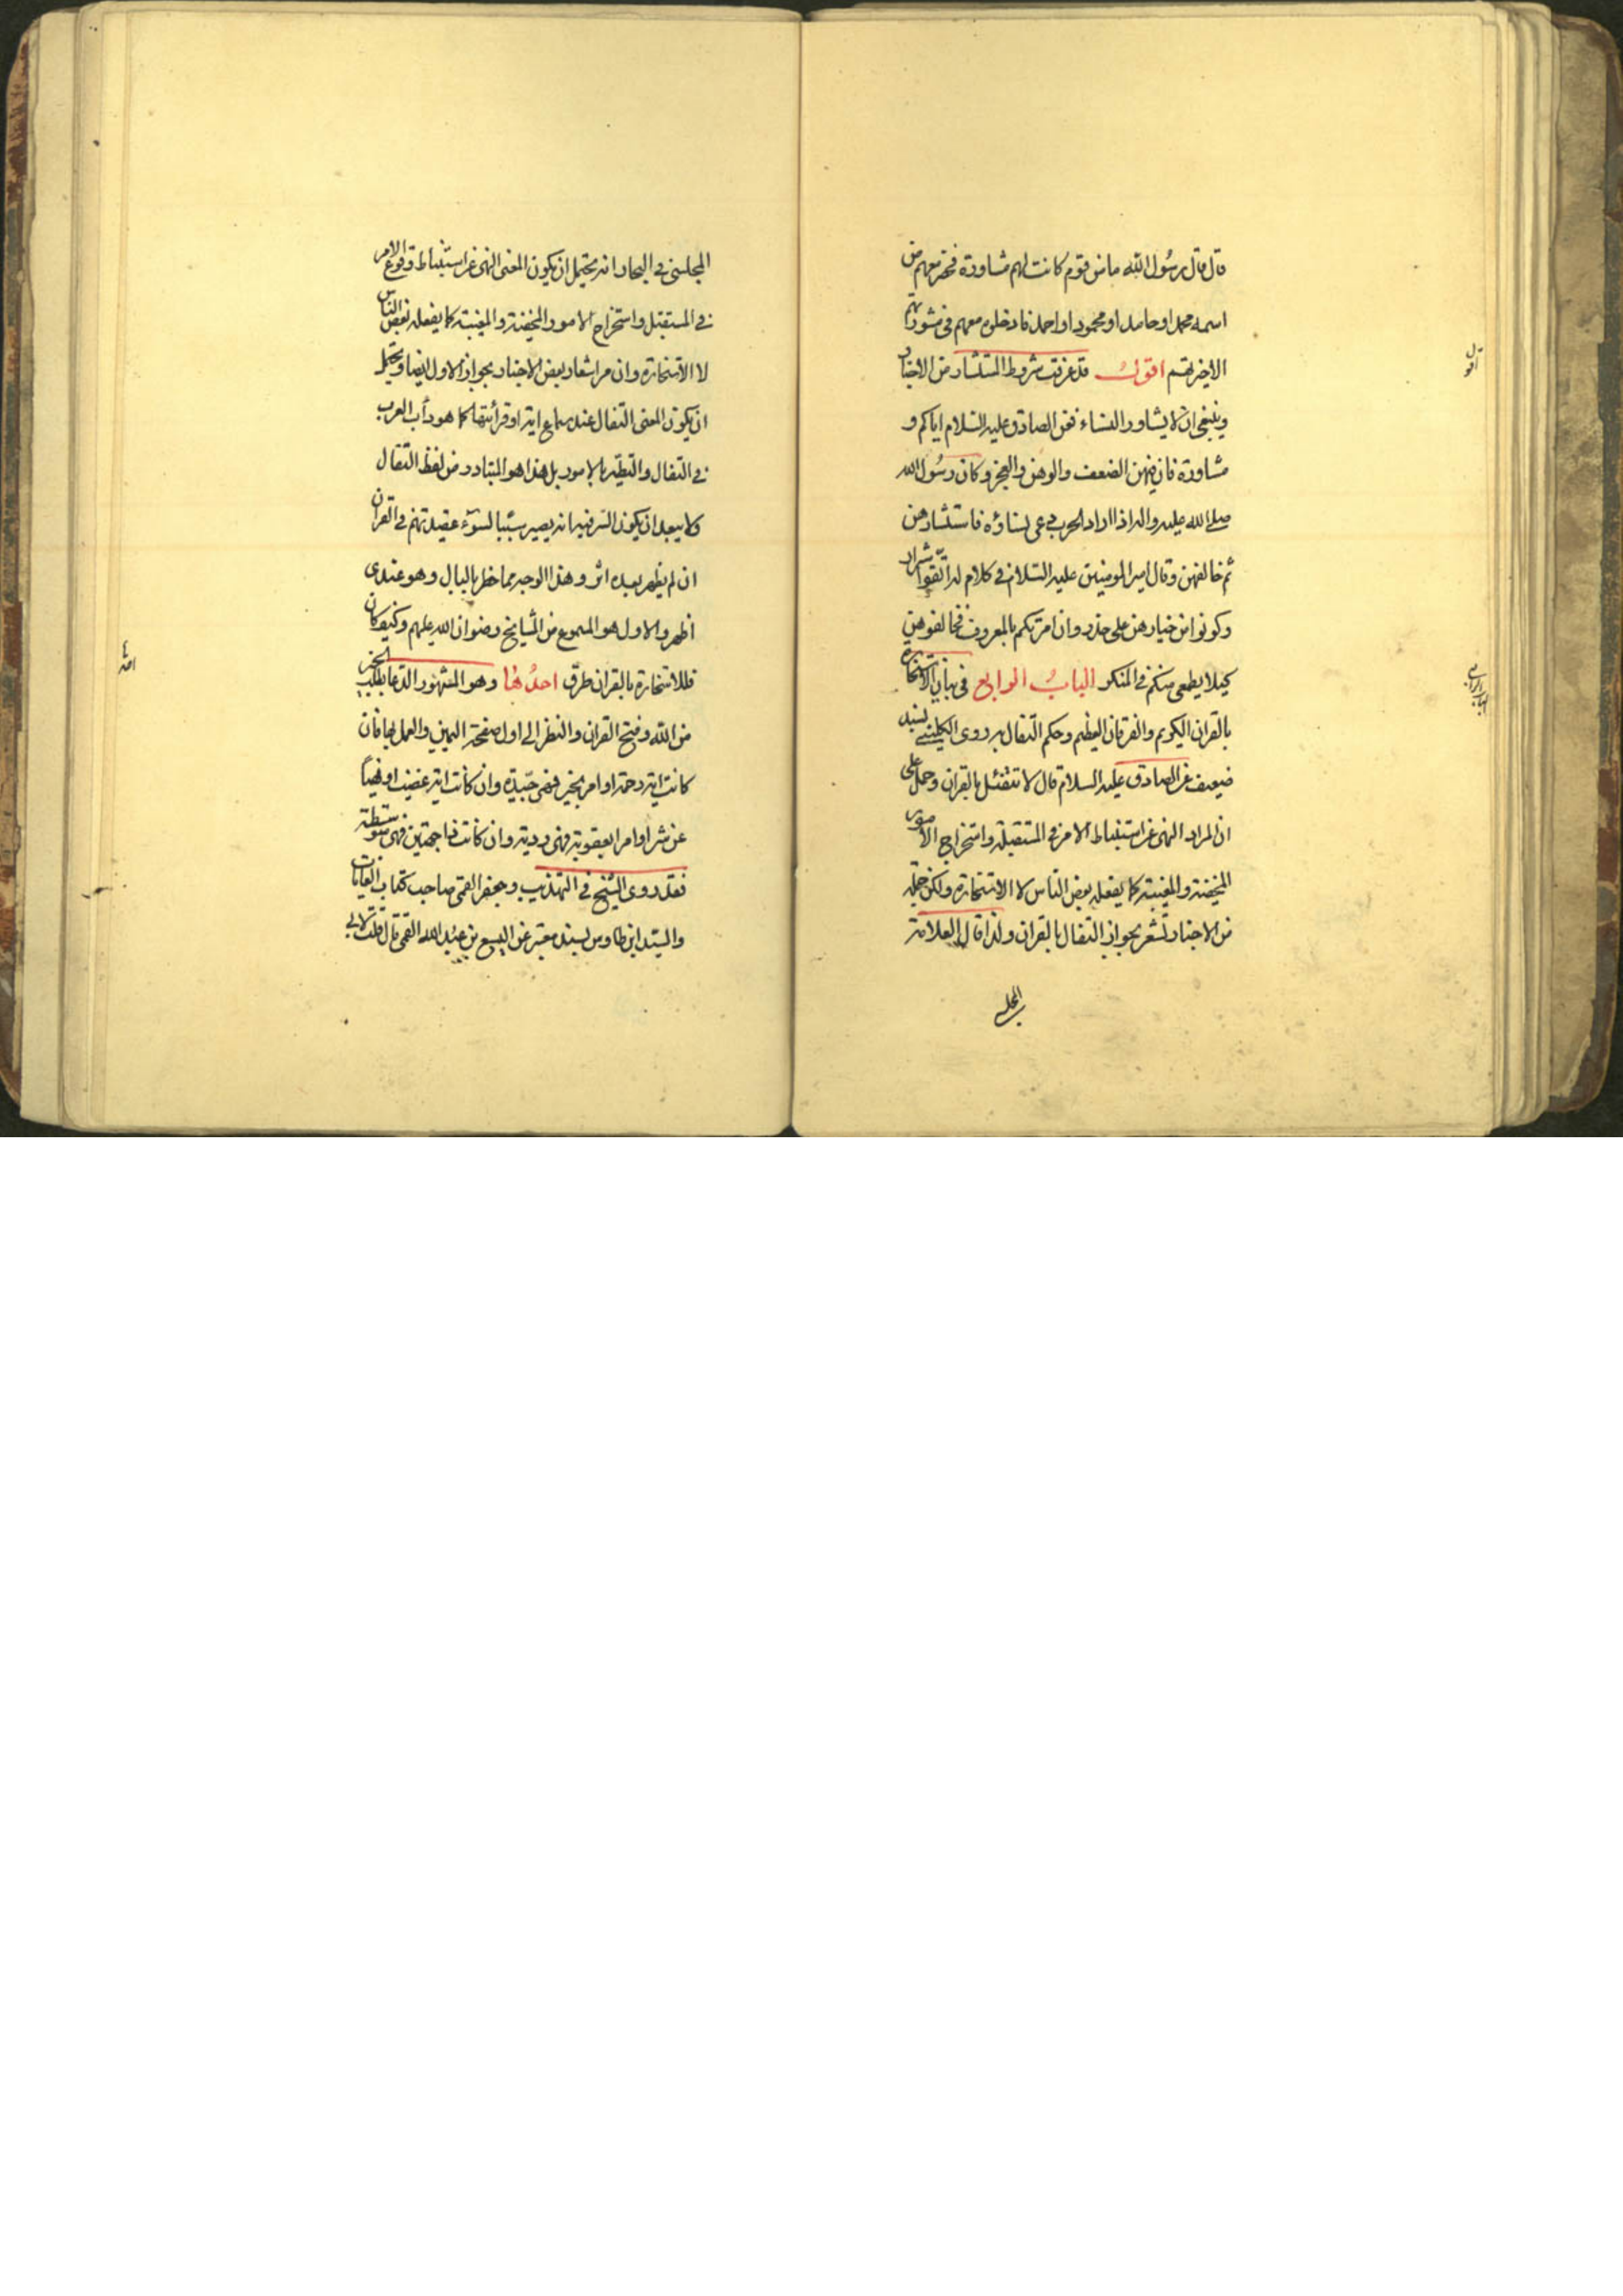 قال قال رسول الله ما من قوم كانت لهم مشاورة فحضر معهم من
اسمه محمد او حامد او محمود او احمد فادخلوه معهم في مشورتهم
الا خير لهم اقول قد عرفت شروط المستشار من الاخبار
وينبغي ان لا يشاور النساء فعن الصادق عليه السلام اياكم و
مشاورة فان فيهن الضعف والوهن والعجز وكان رسول الله
صلى الله عليه واله اذا اراد الحرب دعى نساؤه فاستشارهن
ثم خالفهن وقال امير المومنين عليه السلام في كلام له اتقوا شرار
وكونوا من خيارهن على حذر وان امرنكم بالمعروف فخالفوهن
كيلا يطمعن منكم في المنكر الباب الرابع في بيان الاستخارة
بالقران الكريم والفرقان العظيم وحكم التفال به روى الكليني بسند
ضعيف عن الصادق عليه السلام قال لا تتفئل بالقران وحمل على
ان المراد النهي عن استنباط الامر في المستقبلة واستخراج الامور
المخفية والمغيبة كما يفعله بعض الناس لا الاستخارة ولكن جملة
من الاخبار تشعر بجواز التفال بالقران ولذا قال العلامة
المجلسي
اقول
الباب الرابع
المجلسي في البحار انه يحتمل ان يكون المعنى النهي عن استنباط وقوع الامر
في المستقبل واستخراج الامور المخفية والمغيبة كما يفعله بعض الناس
لا الاستخارة وان مر اشعار بعض الاخبار بجواز الاول ايضا ويحتمل
ان يكون المعنى التفال عند سماع اية او قرائتها كما هو دأب العرب
في التفال والتطير بالامور بل هذا هو المتبادر من لفظ التفال
ولا يبعد ان يكون السر فيه انه يصير سببا لسوء عقيدتهم في القران
ان لم يظهر بعده اثر وهذا الوجه مما خطر بالبال وهو عندي
اظهر والاول هو المسموع من المشايخ رضوان الله عليهم وكيف كان
فللاستخارة بالقران طرق احدها وهو المشهور الدعا بطلب الخير
من الله وفتح القران والنظر الى اول صفحة اليمين والعمل بها فان
كانت اية رحمة او امر بخير فهي جيدة وان كانت اية غضب او نهيا
عن شر او امرا بعقوبة فهي ردية وان كانت ذا جهتين فهي متوسطة
فقد روى الشيخ في التهذيب وجعفر القمي صاحب كتاب الغايات
والسيد ابن طاوس بسند معتبر عن اليسع بن عبد الله القمي قال قلت لابي